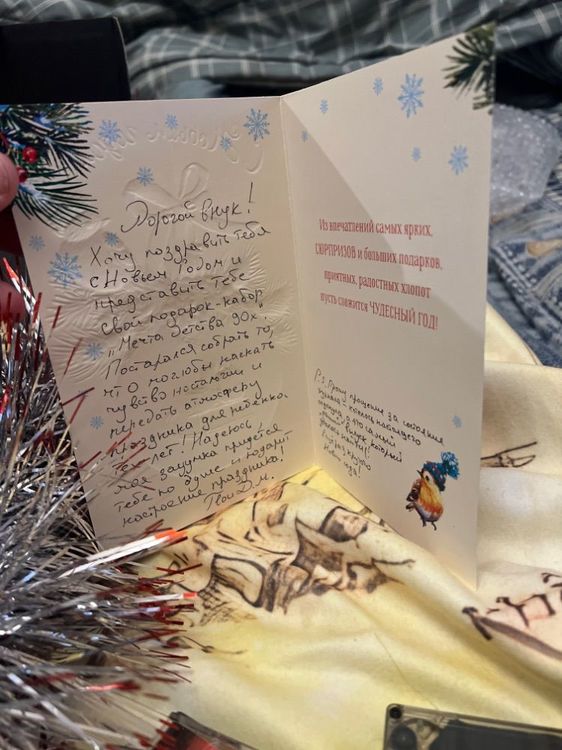 Дорогой внук!
Хочу поздравить тебя
с Новым Годом и
представить тебе
свой подарок-набор
"Мечта детства 90х".
Постарался собрать то,
что могло бы навеять
чувство ностальгии и
передать атмосферу
праздника для ребенка
тех лет! Надеюсь,
моя задумка придется
тебе по душе и подарит
настроение праздника!
Твой Д.М.
Из впечатлений самых ярких,
СЮРПРИЗОВ и больших подарков,
приятных, радостных хлопот
пусть сложится ЧУДЕСНЫЙ ГОД!
P.s. Прошу прощение за состояние
который
Нового года!